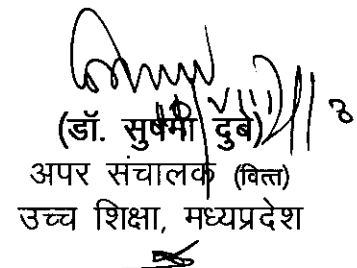 (डॉ. सुषमा दुबे)
अपर संचालक (वित्त)
उच्च शिक्षा, मध्यप्रदेश